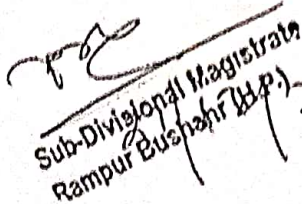 Sub-Divisional Magistrate
Rampur Bushahr (H.P.)